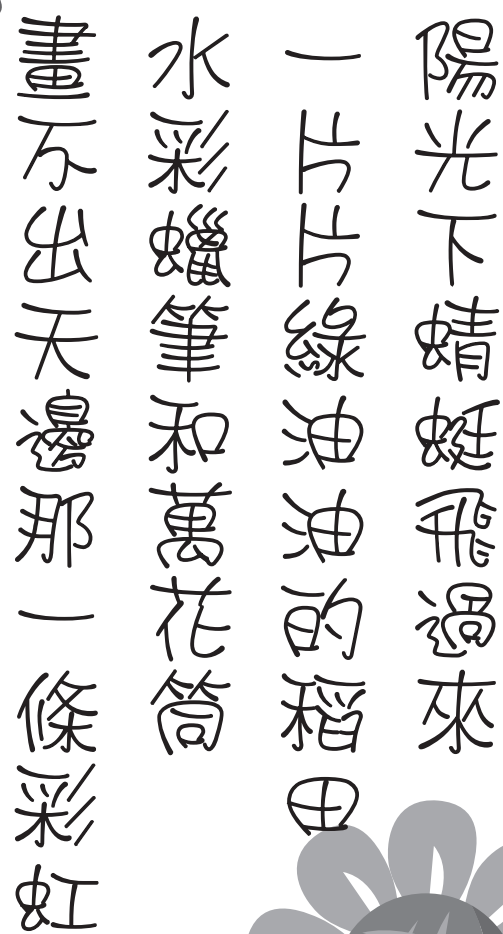 陽光下蜻蜓飛過來
一片片綠油油的稻田
水彩蠟筆和萬花筒
畫不出天邊那一條彩虹